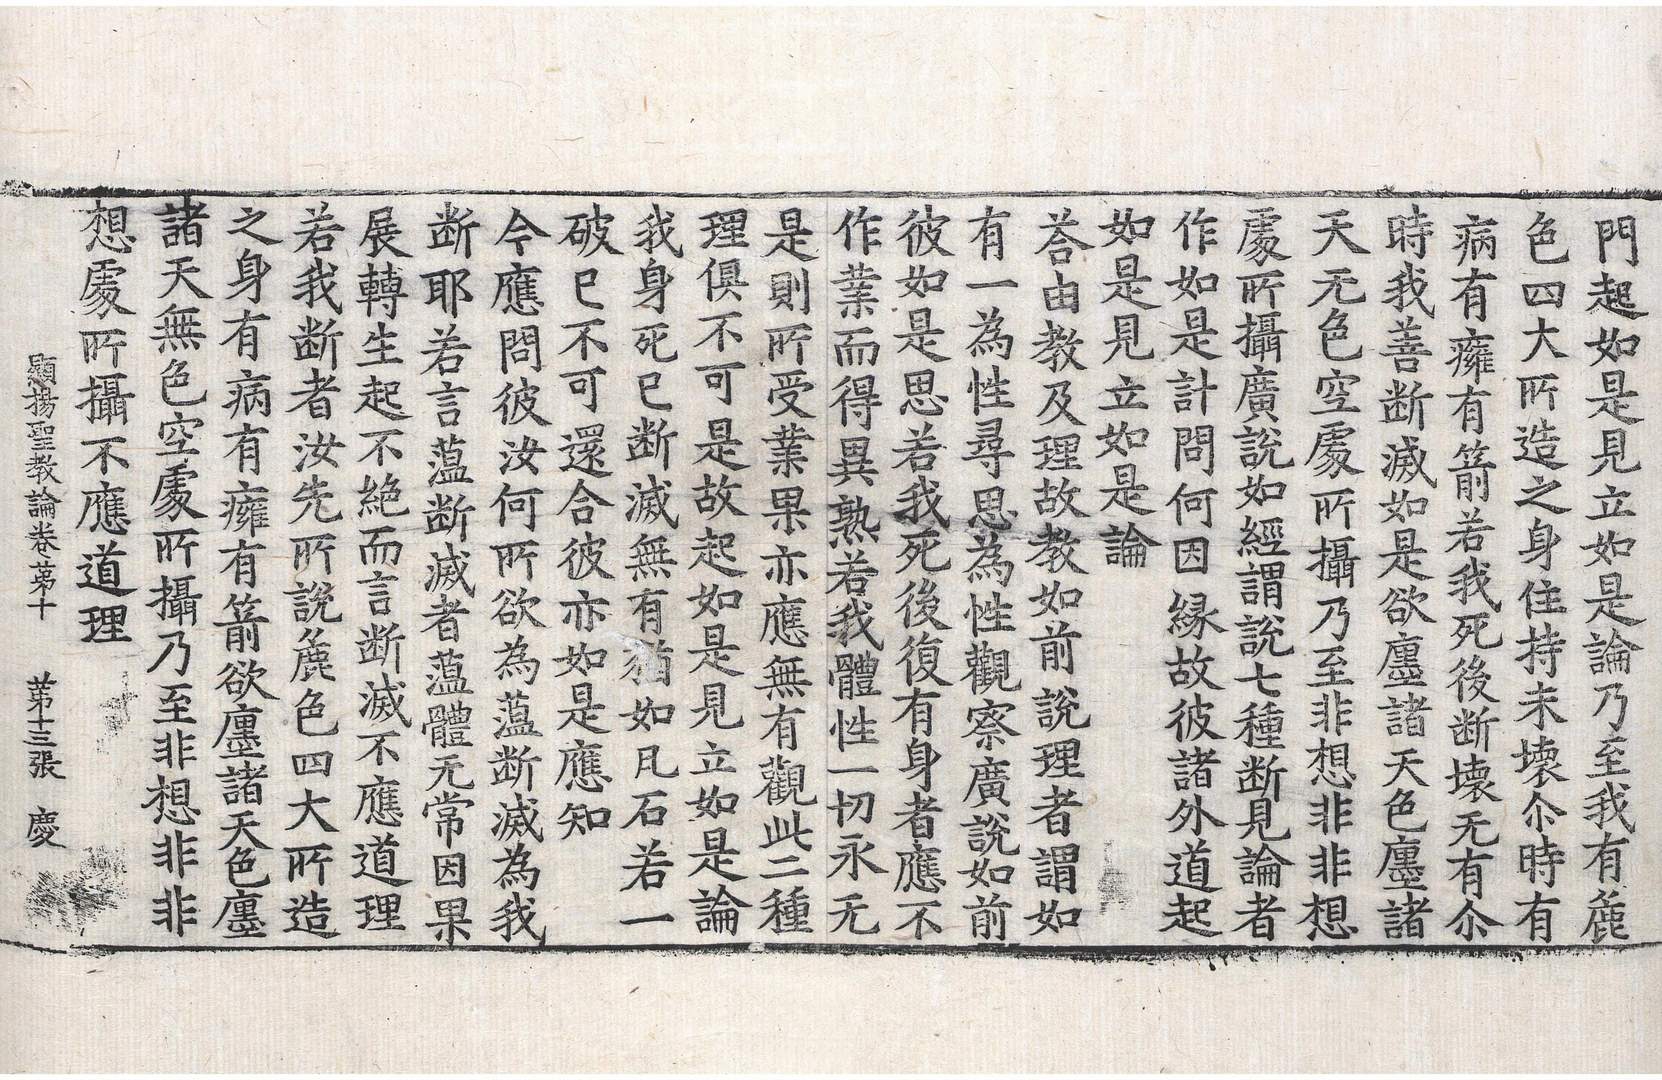 門起如是見立如是論乃至我有麁
色四大所造之身住持未壞尒時有
病有癰有箭若我死後断壞无有尒
時我善断滅如是欲廛諸天色廛諸
天无色空處所攝乃至非想非非想
處所攝廣說如經謂說七種断見論者
作如是計問何因緣故彼諸外道起
如是見立如是論
荅由教及理故教如前說理者謂如
有一為性尋思為性觀察廣說如前
彼如是思若我死後復有身者應不
作業而得異熟若我體性一切永无
是則所受業果亦應無有觀此二種
理俱不可是故起如是見立如是論
我身死已断滅無有猶如凡石若一
破已不可還合彼亦如是應知
今應問彼汝何所欲為薀断滅為我
断耶若言薀断滅者薀體无常因果
展轉生起不絕而言断滅不應道理
若我断者汝先所說麁色四大所造
之身有病有癰有箭欲廛諸天色廛
諸天無色空處所攝乃至非想非非
想處所攝不應道理
顯揚聖教論卷苐十 苐十三張 慶